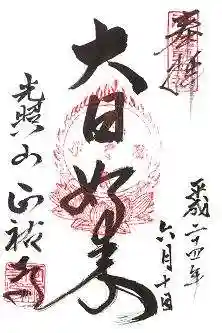 奉拝
平成二十四年
六月十日
大日如来
光照山 正福寺